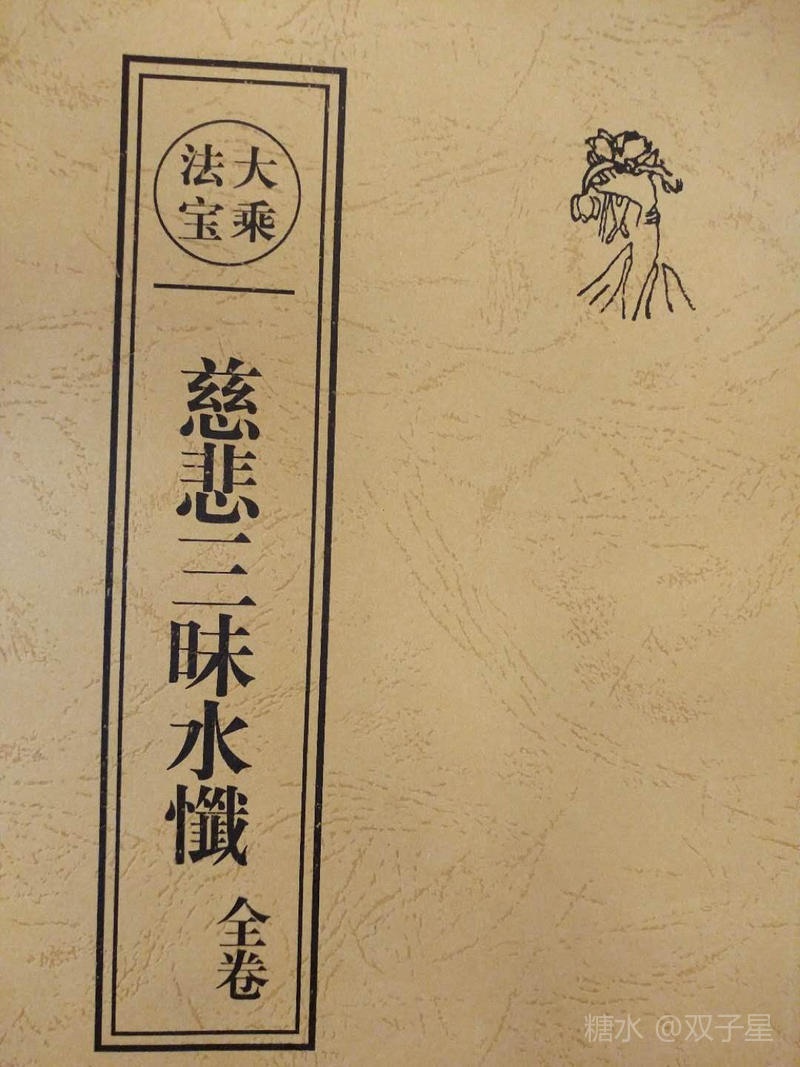 大乘
法宝
慈悲三昧水懺
全卷
糖水 @双子星